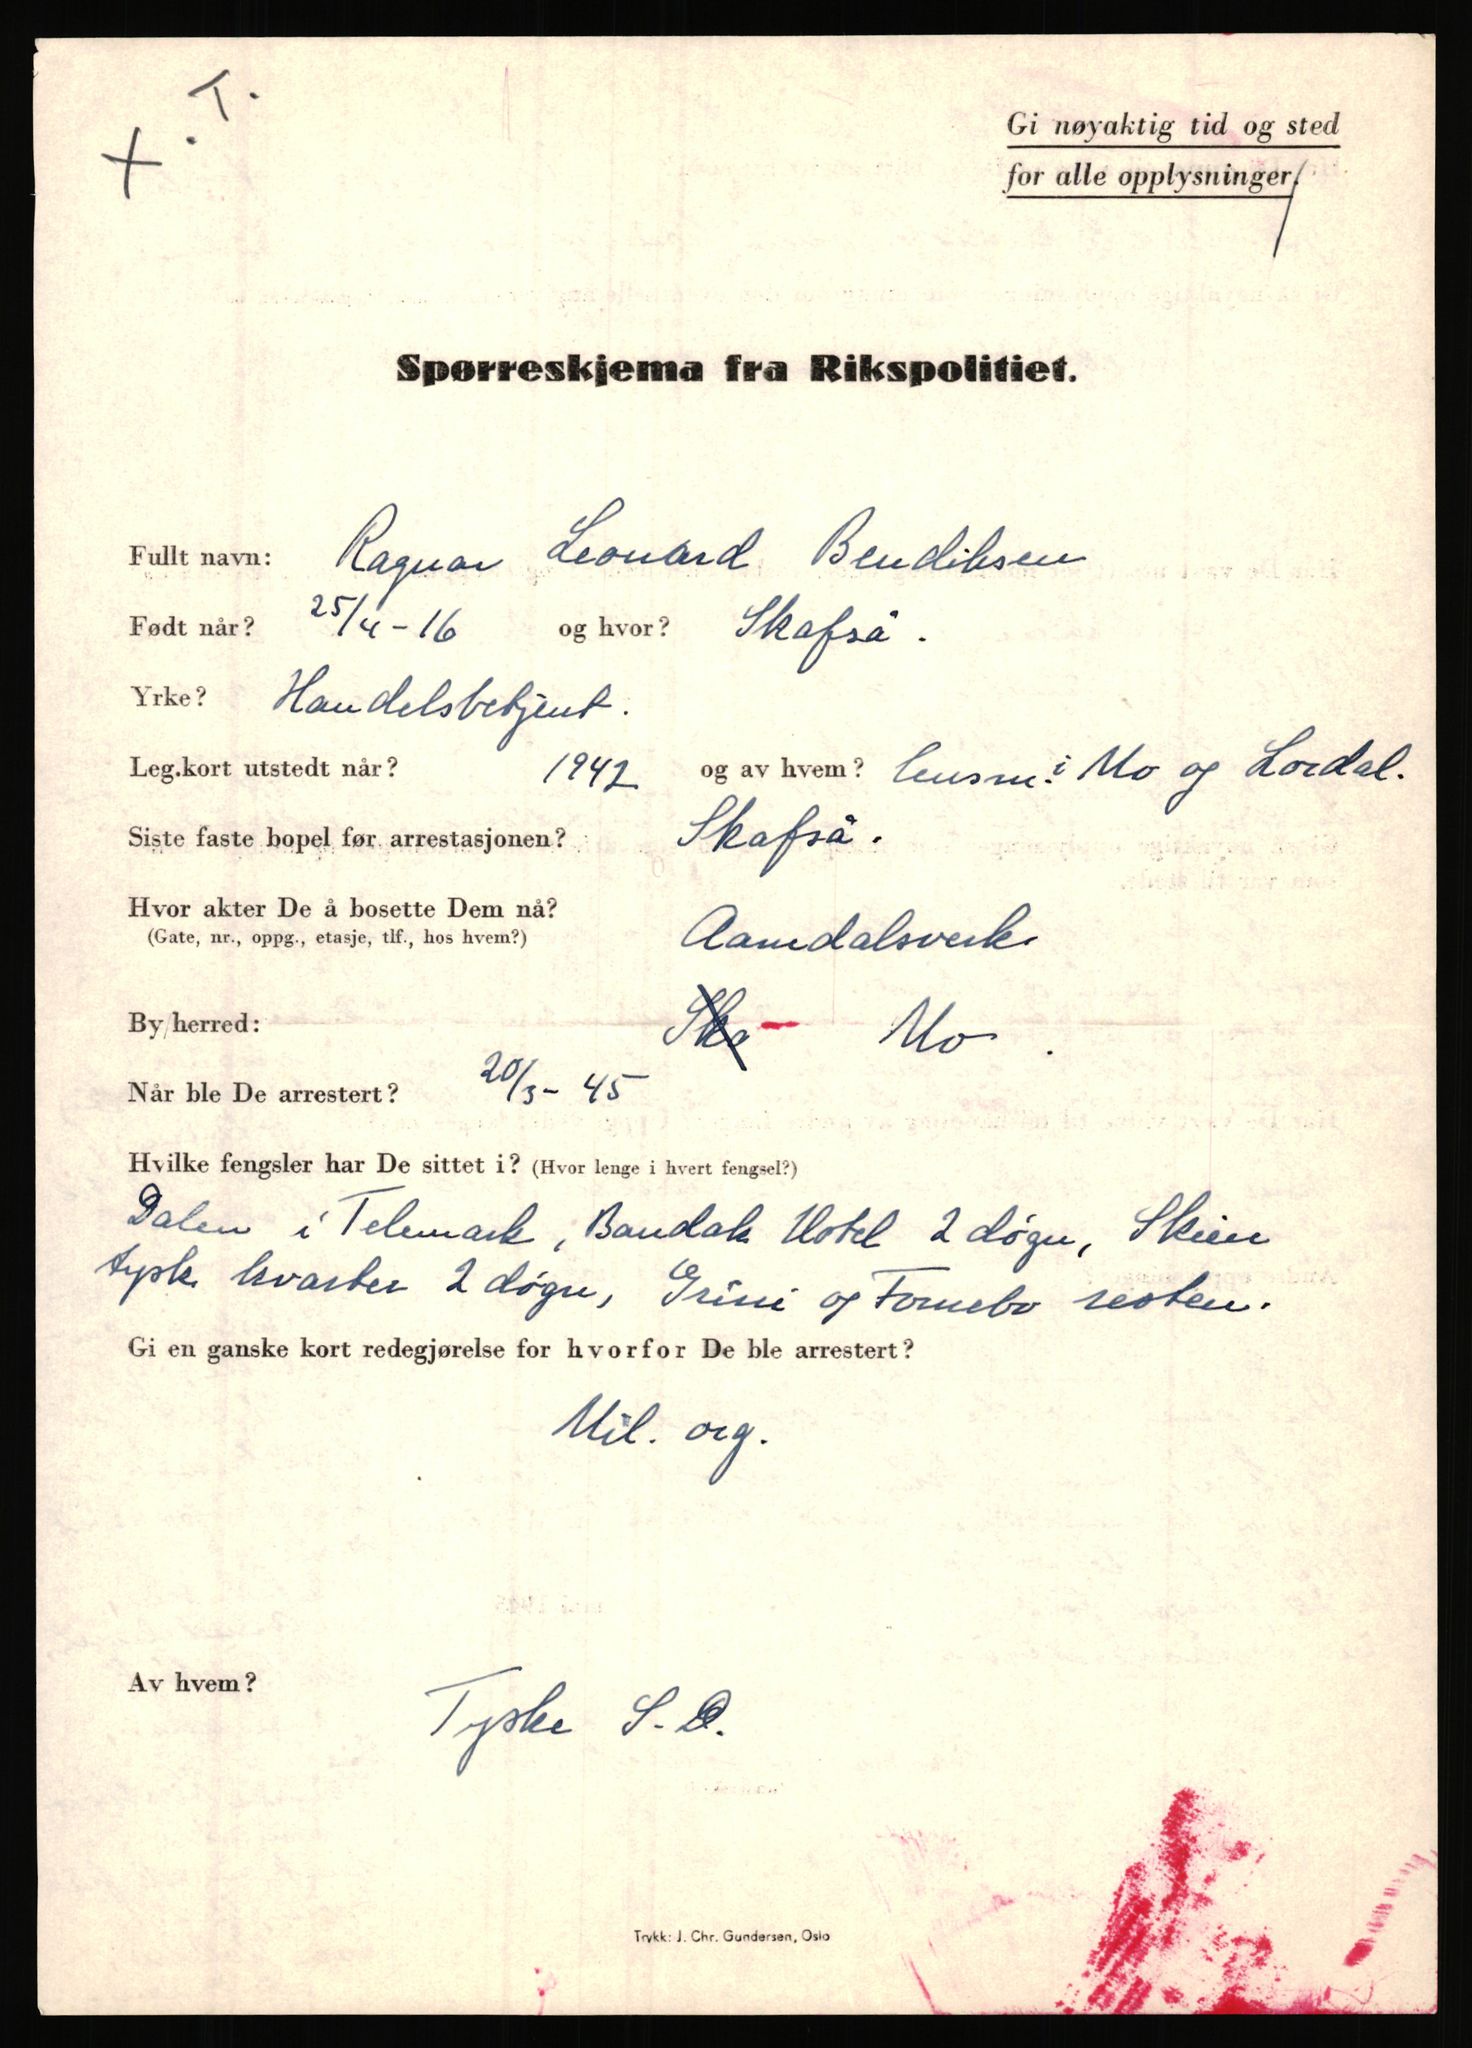 + . T.
Gi nøyaktig tid og sted
for alle opplysninger.
Spørreskjema fra Rikspolitiet.
Fullt navn: Ragnar Leonard Bendiksen
Født når? 25/4-16 og hvor? Skafså.
Yrke? Handelsbetjent.
Leg.kort utstedt når? 1942 og av hvem? lensm. i Mo og Lårdal.
Siste faste bopel før arrestasjonen? Skafså.
Hvor akter De å bosette Dem nå?
(Gate, nr., oppg., etasje, tlf., hos hvem?) Aamdalsverk
By/herred: Ska – Mo.
Når ble De arrestert? 20/3-45
Hvilke fengsler har De sittet i? (Hvor lenge i hvert fengsel?)
Dalen i Telemark, Bandak Hotel 2 døgn, Skien
tysk kvarter 2 døgn, Grini og Fornebo resten.
Gi en ganske kort redegjørelse for hvorfor De ble arrestert?
Mil. org.
Av hvem? Tyske S.D.
Trykk: J. Chr. Gundersen, Oslo